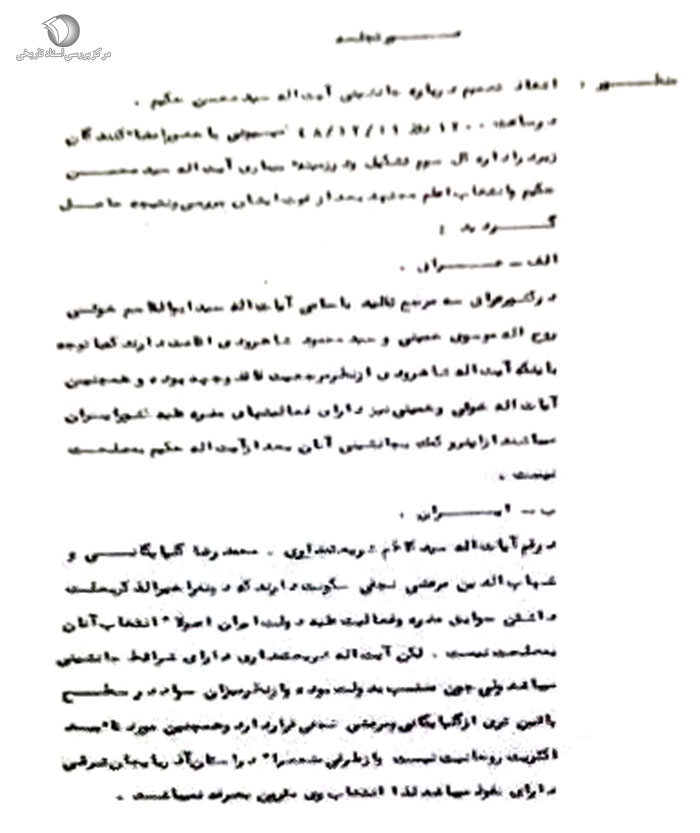 مرکز بررسی اسناد تاریخی
صورتجلسه
منظور : اتخاذ تصمیم درباره جانشینی آیت اله سید محسن حکیم .
در ساعت ۱۲۰۰ روز ۴۸/۱۲/۱۱ کمیسیونی با حضور امضا کنندگان
زیر در اداره کل سوم تشکیل و در زمینه بیماری آیت اله سید محسن
حکیم و انتخاب اعلم مجتهد بعد از فوت ایشان بررسی و نتیجه حاصل
گردید :
الف - عراق .
در کشور عراق سه مرجع تقلید باسامی آیات اله سید ابوالقاسم خوئی
روح اله موسوی خمینی و سید محمود شاهرودی اقامت دارند که با توجه
باینکه آیت اله شاهرودی از نظر مرجعیت فاقد وجهه بوده و همچنین
آیات اله خوئی و خمینی نیز دارای فعالیتهای مضره علیه کشور ایران
میباشند از اینرو کمک بجانشینی آنان بعد از آیت اله حکیم بمصلحت
نیست .
ب - ایران .
در قم آیات اله سید کاظم شریعتمداری . محمد رضا گلپایگانی و
شهاب الدین مرعشی نجفی سکونت دارند که دو نفر اخیرالذکر بعلت
داشتن سوابق مضره و فعالیت علیه دولت ایران اصولا" انتخاب آنان
بمصلحت نیست . لکن آیت اله شریعتمداری دارای شرائط جانشینی
میباشد ولی چون منتسب بدولت بوده و از نظر میزان سواد در سطح
پائین تری از گلپایگانی و مرعشی نجفی قرار دارد و همچنین مورد تائید
اکثریت روحانیت نیست و از طرفی منحصرا" در استان آذربایجان شرقی
دارای نفوذ میباشد لذا انتخاب وی مقرون بصرفه نمیباشد .